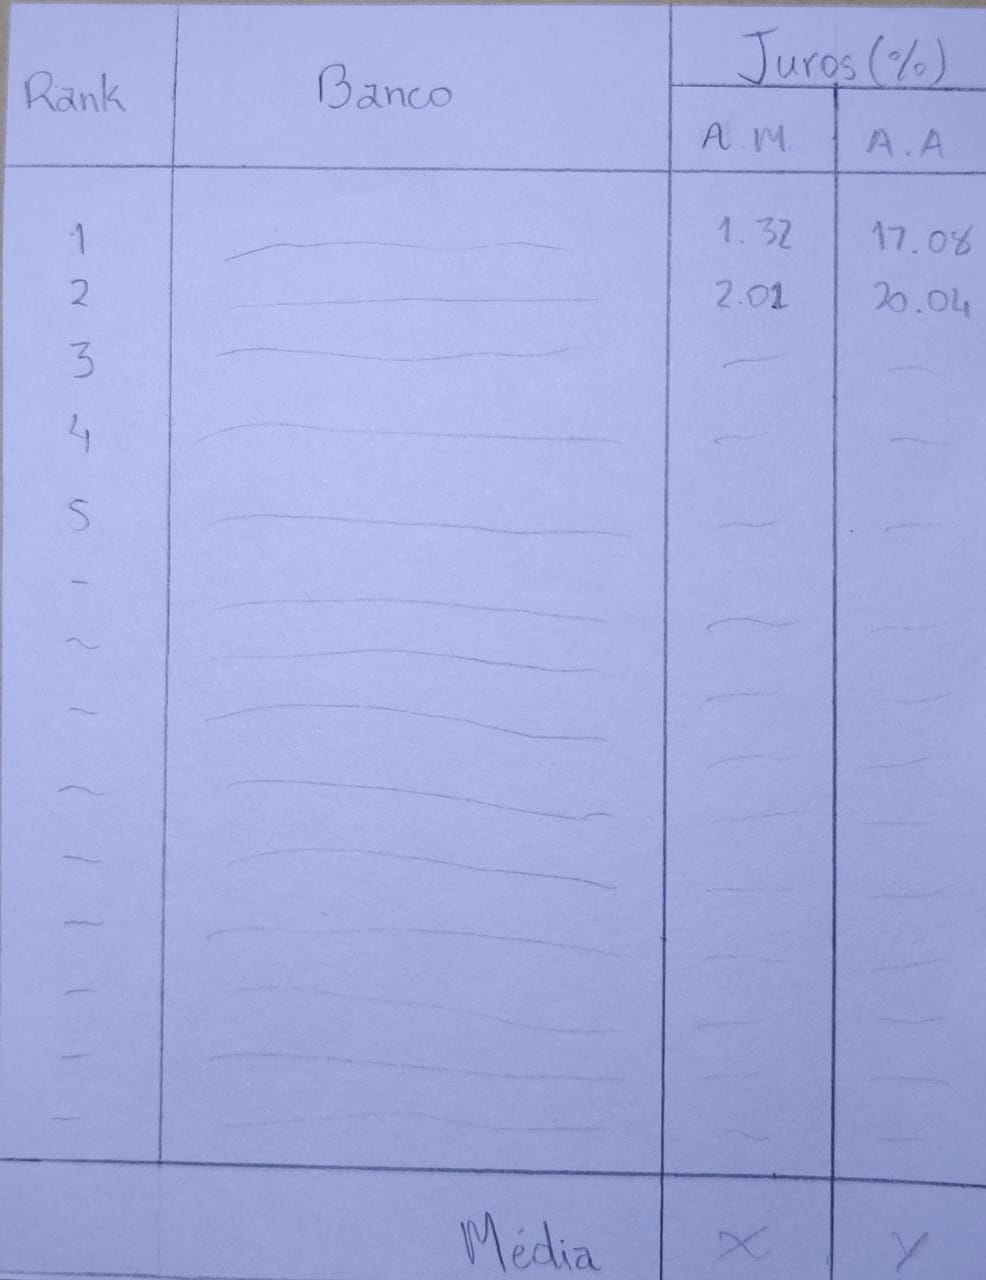 Rank Banco Juros (%)
A.M. A.A.
1 1.32 17.08
2 2.01 20.04
3
4
5
Média X Y